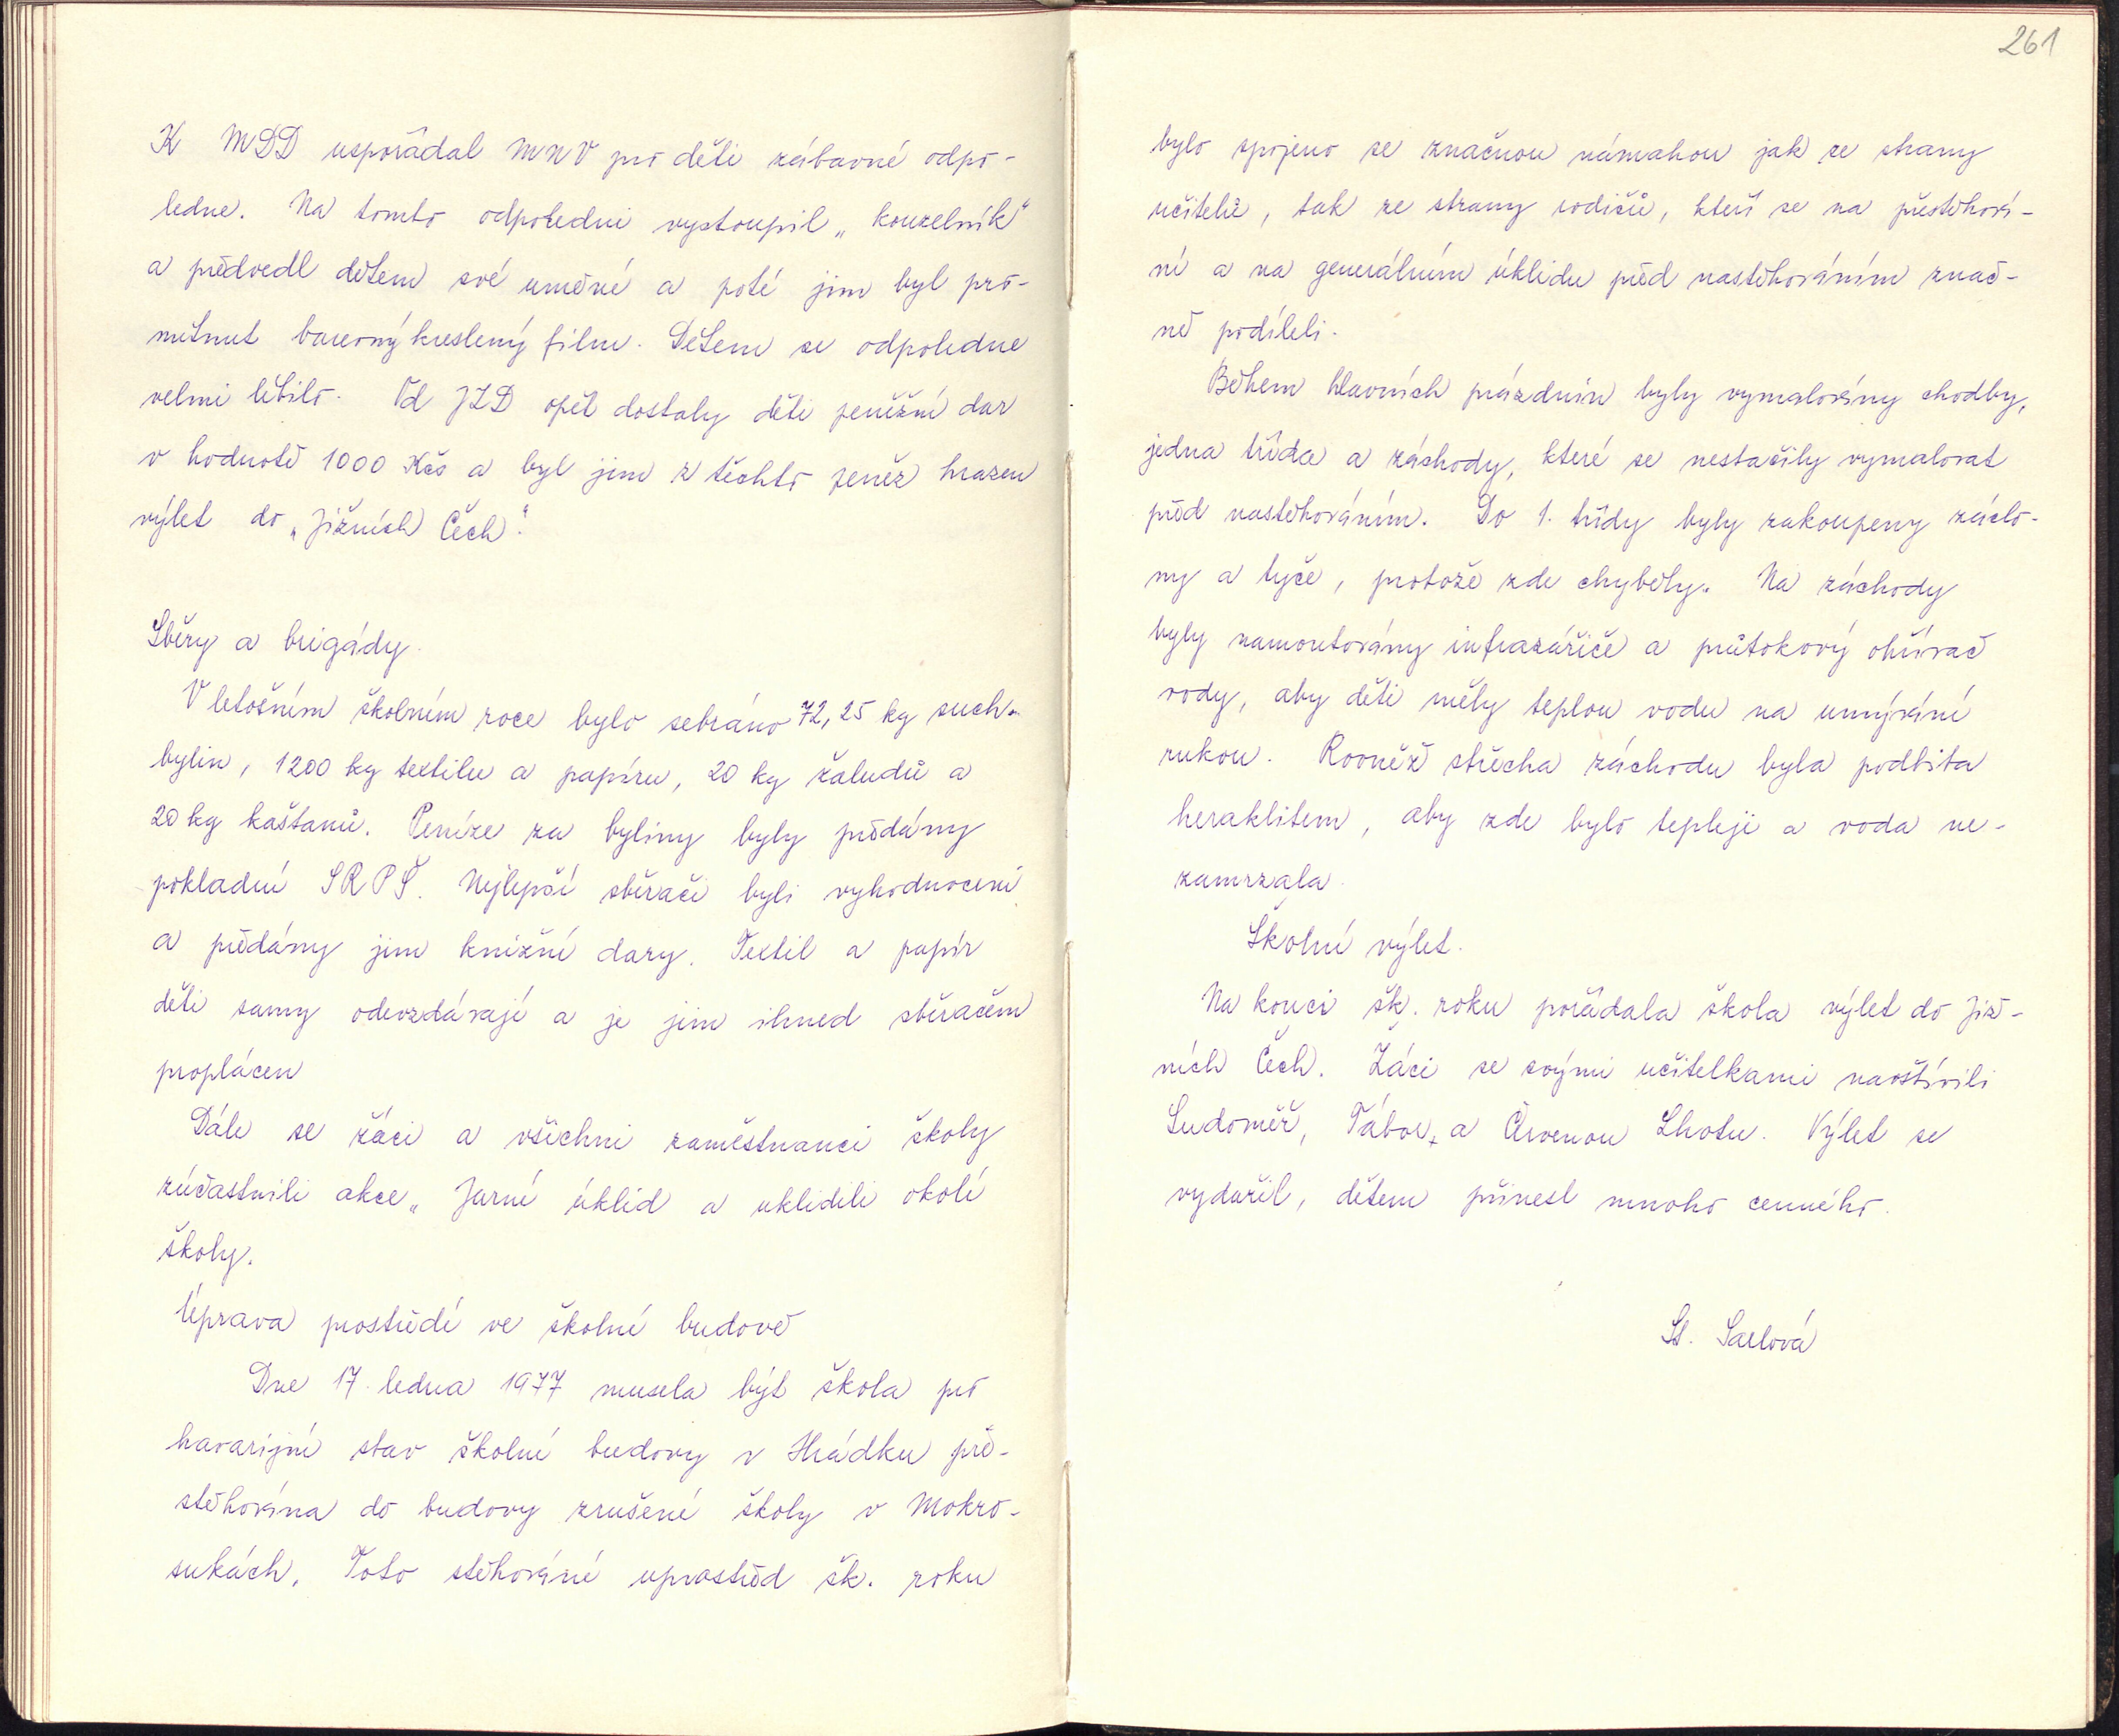 K MDD uspořádal MNV pro děti zábavné odpo-
ledne. Na tomto odpoledni vystoupil „kouzelník"
a předvedl dětem své umění a poté jim byl pro-
mítnut barevný kreslený film. Dětem se odpoledne
velmi líbilo. Od JZD opět dostaly děti peněžní dar
v hodnotě 1000 Kčs a byl jim z těchto peněz hrazen
výlet do „Jižních Čech".
Sběry a brigády.
V letošním školním roce bylo sebráno 72,25 kg such.
bylin, 1200 kg textilu a papíru, 20 kg žaludů a
20 kg kaštanů. Peníze za byliny byly předány
pokladní SRPŠ. Nejlepší sběrači byli vyhodnoceni
a předány jim knižní dary. Textil a papír
děti samy odevzdávají a je jim ihned sběračem
proplácen
Dále se žáci a všichni zaměstnanci školy
zúčastnili akce „Jarní úklid a uklidili okolí
školy.
Úprava prostředí ve školní budově
Dne 17. ledna 1977 musela být škola pro
havarijní stav školní budovy v Hrádku pře-
stěhována do budovy zrušené školy v Mokro-
sukách. Toto stěhování uprostřed šk. roku
261
bylo spojeno se značnou námahou jak ze strany
učitelů, tak ze strany rodičů, kteří se na přestěhová-
ní a na generálním úklidu před nastěhováním znač-
ně podíleli.
Během hlavních prázdnin byly vymalovány chodby,
jedna třída a záchody, které se nestačily vymalovat
před nastěhováním. Do 1. třídy byly zakoupeny záclo-
ny a tyče, protože zde chyběly. Na záchody
byly namontovány infrazářiče a průtokový ohřívač
vody, aby děti měly teplou vodu na umývání
rukou. Rovněž střecha záchodu byla podbita
heraklitem, aby zde bylo tepleji a voda ne-
zamrzala.
Školní výlet.
Na konci šk. roku pořádala škola výlet do Již-
ních Čech. Žáci se svými učitelkami navštívili
Sudoměř, Tábor, a Červenou Lhotu. Výlet se
vydařil, dětem přinesl mnoho cenného.